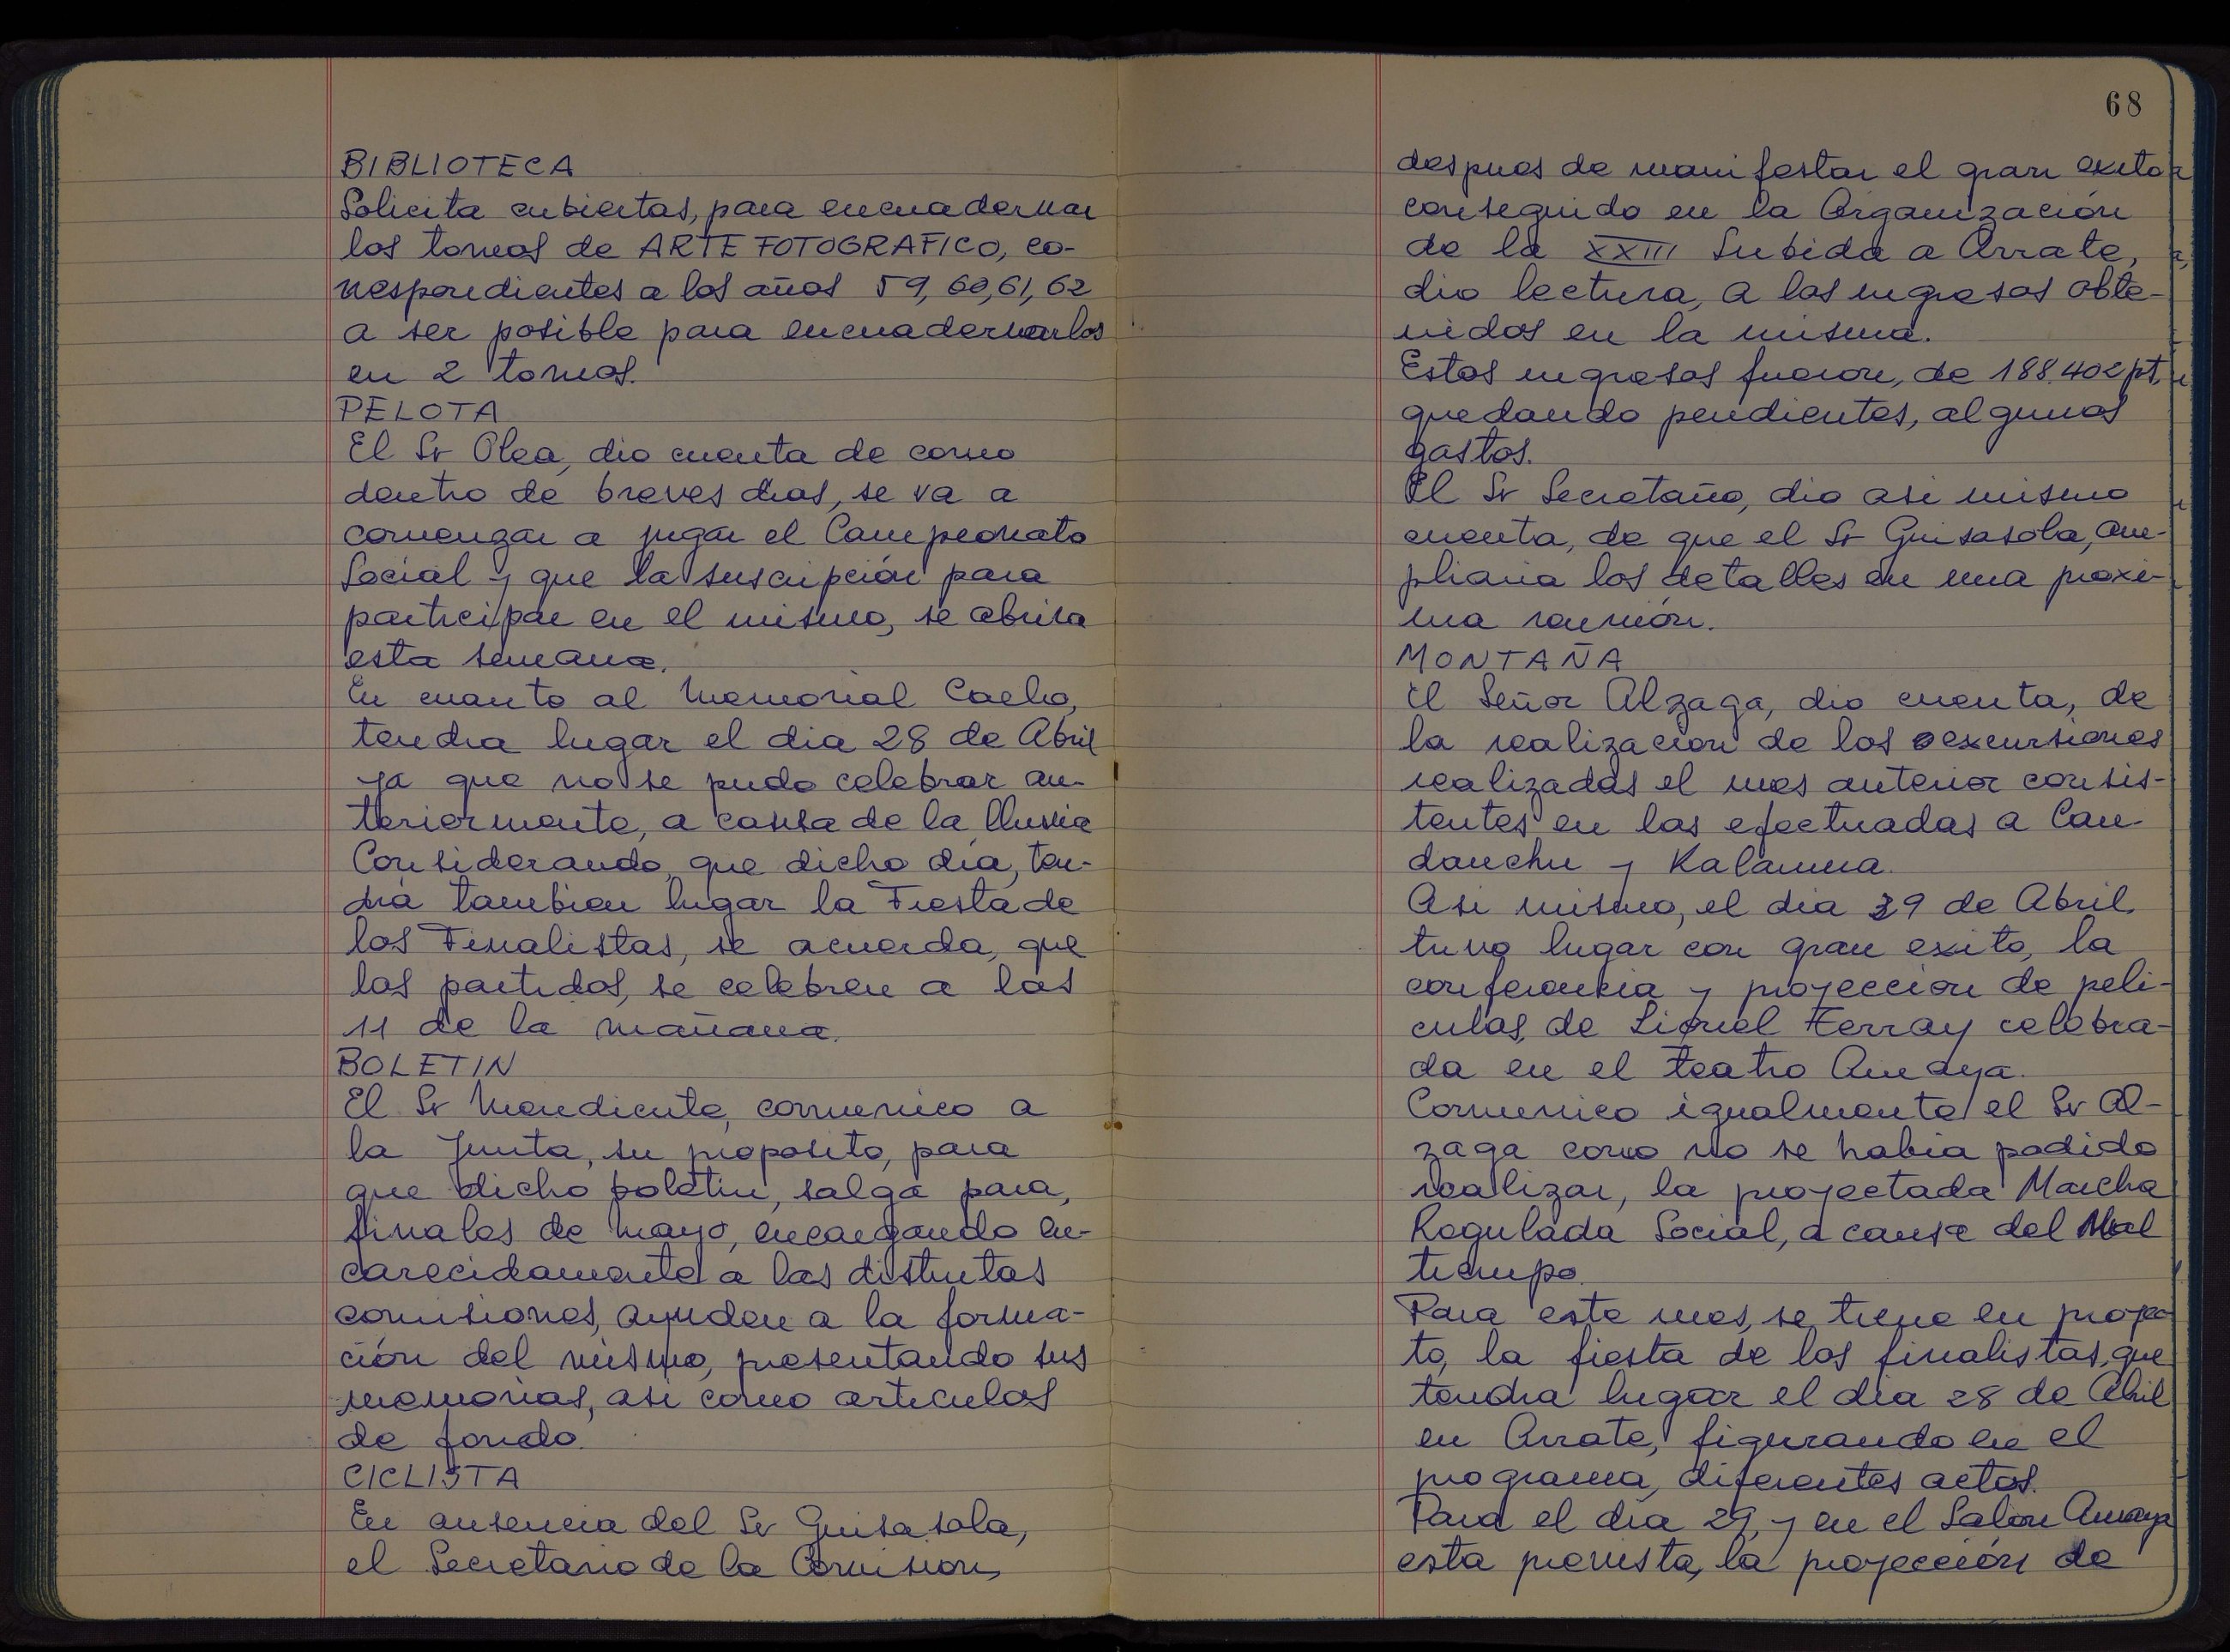 BIBLIOTECA
Solicita cubiertas, para encuadernar
los tomos de ARTE FOTOGRAFICO, co-
rrespondientes a los años 59, 60, 61, 62
a ser posible para encuadernarlos
en 2 tomos.
PELOTA
El Sr Olea, dio cuenta de como
dentro de breves dias, se va a
comenzar a jugar el Campeonato
Social y que la suscripción para
participar en el mismo, se abrira
esta semana.
En cuanto al Memorial Coello,
tendra lugar el dia 28 de Abril
ya que no se pudo celebrar an-
teriormente, a causa de la lluvia
Considerando, que dicho día, ten-
drá tambien lugar la Fiesta de
los Finalistas, se acuerda, que
los partidos, se celebren a las
11 de la mañana.
BOLETIN
El Sr Mendicute, comunico a
la Junta, su proposito, para
que dicho boletin, salga para,
finales de mayo, encargando en-
carecidamente a las distintas
comisiones, ayuden a la forma-
ción del mismo, presentando sus
memorias, asi como articulos
de fondo.
CICLISTA
En ausencia del Sr Guisasola,
el Secretario de la Comision,
68
despues de manifestar el gran exito
conseguido en la Organización
de la XXIII Subida a Arrate,
dio lectura, a los ingresos obte-
nidos en la misma.
Estos ingresos fueron, de 188.402 pt,
quedando pendientes, algunos
gastos.
El Sr Secretario, dio asi mismo
cuenta, de que el Sr Guisasola, am-
pliaria los detalles en una proxi-
ma reunión.
MONTAÑA
El Señor Alzaga, dio cuenta, de
la realizacion de las excursiones
realizadas el mes anterior consis-
tentes en las efectuadas a Can-
danchu y Kalamua.
Asi mismo, el dia 29 de Abril,
tuvo lugar con gran exito, la
conferencia y proyeccion de peli-
culas, de Lionel Terray celebra-
da en el teatro Amaya.
Comunico igualmente el Sr Al-
zaga como no se habia podido
realizar, la proyectada Marcha
Regulada Social, a causa del Mal
tiempo.
Para este mes, se tiene en proyec
to, la fiesta de los finalistas, que
tendra lugar el dia 28 de Abril
en Arrate, figurando en el
programa, diferentes actos.
Para el día 29, y en el Salon Amaya
esta prevista, la proyección de